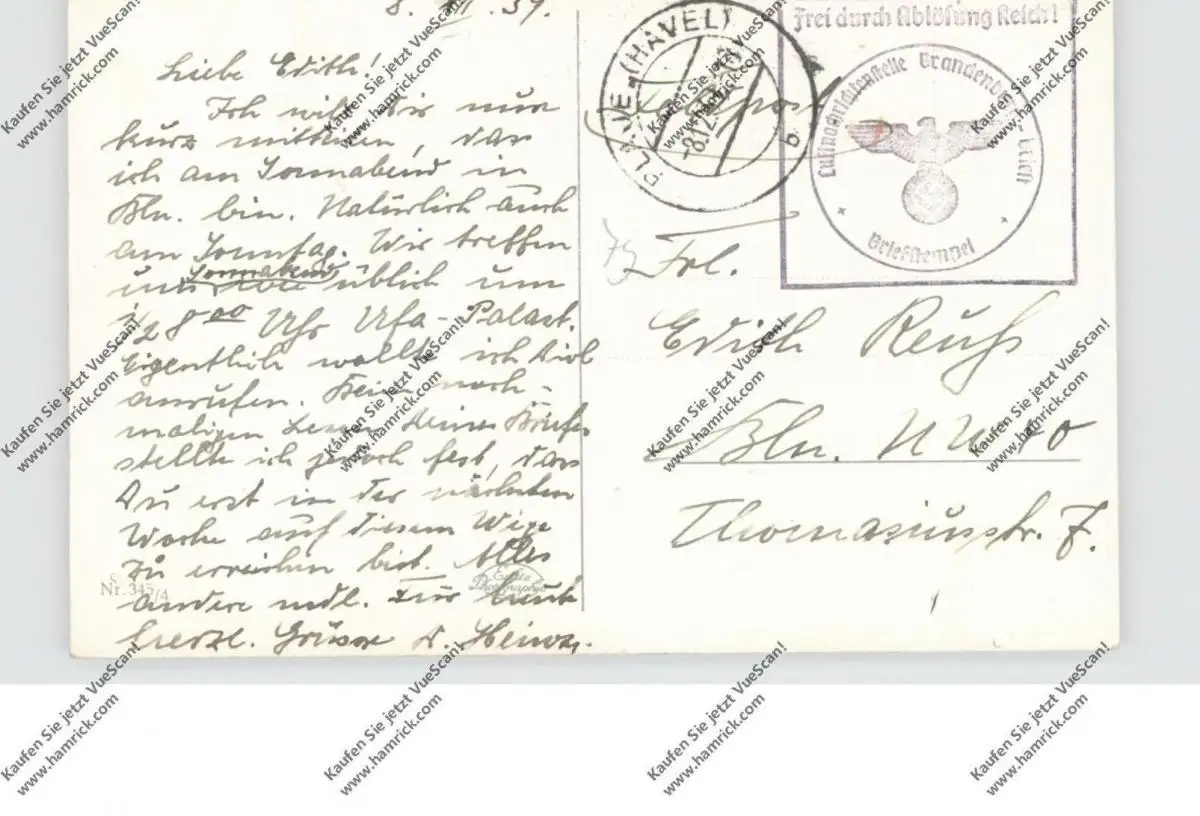 8. XII. 39.
Liebe Edith!
Ich will Dir nun
kurz mitteilen, das
ich am Sonnabend in
Bln. bin. Natürlich auch
am Sonntag. Wir treffen
Sonnabend
uns wie üblich um
1/2 8 00 Uhr Ufa-Palast.
Eigentlich wollte ich Dich
anrufen. Beim noch-
maligen Lesen Deines Briefes
stellte ich jedoch fest, das
Du erst in der nächsten
Woche auf diesem Wege
zu erreichen bist. Alles
andere mdl. Für heute
herzl. Grüsse D. Heinz.
Nr. 345/4
Echte
Photographie
PLAUE (HAVEL)
-8.12.
b
Feldpost
Frei durch Ablösung Reich!
Luftnachrichtenstelle Brandenburg-Briest
Briefstempel
Frl.
Edith Reuß
Bln. NW 40
Thomasiusstr. 7.
Kaufen Sie jetzt VueScan!
www.hamrick.com
Kaufen Sie jetzt VueScan!
www.hamrick.com
Kaufen Sie jetzt VueScan!
www.hamrick.com
Kaufen Sie jetzt VueScan!
www.hamrick.com
Kaufen Sie jetzt VueScan!
www.hamrick.com
Kaufen Sie jetzt VueScan!
www.hamrick.com
Kaufen Sie jetzt VueScan!
www.hamrick.com
Kaufen Sie jetzt VueScan!
www.hamrick.com
Kaufen Sie jetzt VueScan!
www.hamrick.com
Kaufen Sie jetzt VueScan!
www.hamrick.com
Kaufen Sie jetzt VueScan!
www.hamrick.com
Kaufen Sie jetzt VueScan!
www.hamrick.com